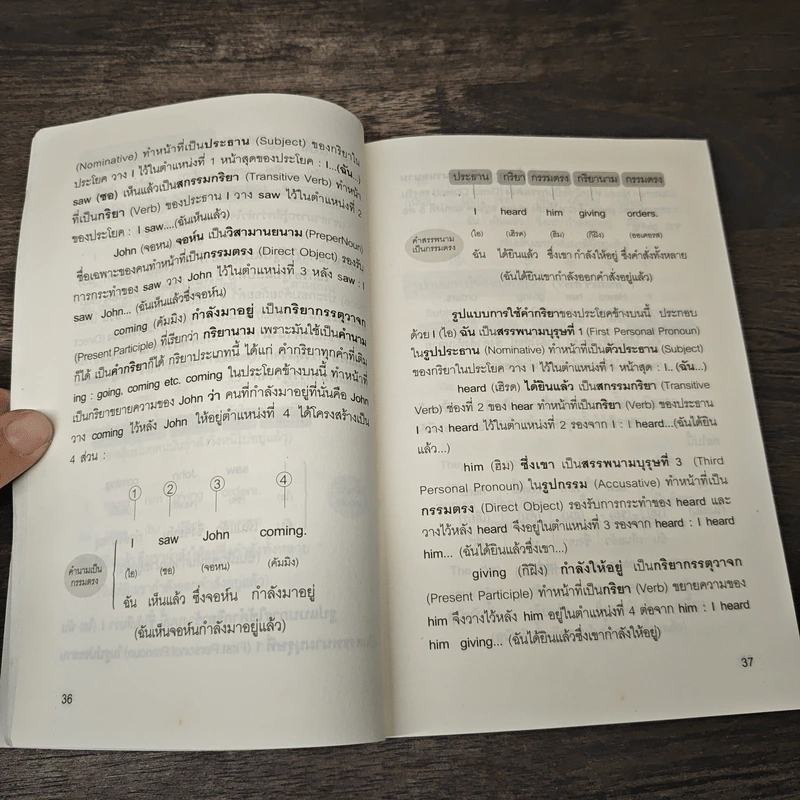 (Nominative) ทำหน้าที่เป็นประธาน (Subject) ของกริยาใน
ประโยค วาง I ไว้ในตำแหน่งที่ 1 หน้าสุดของประโยค : I...(ฉัน...)
saw (ซอ) เห็นแล้วเป็นสกรรมกริยา (Transitive Verb) ทำหน้า
ที่เป็นกริยา (Verb) ของประธาน I วาง saw ไว้ในตำแหน่งที่ 2
ของประโยค : I saw....(ฉันเห็นแล้ว)
John (จอหน) จอห์น เป็นวิสามานยนาม (PreperNoun)
ชื่อเฉพาะของคนทำหน้าที่เป็นกรรมตรง (Direct Object) รองรับ
การกระทำของ saw วาง John ไว้ในตำแหน่งที่ 3 หลัง saw : I
saw John... (ฉันเห็นแล้วซึ่งจอห์น)
coming (คัมมิง) กำลังมาอยู่ เป็นกริยากรรตุวาจก
(Present Participle) ที่เรียกว่า กริยานาม เพราะมันใช้เป็นคำนาม
ก็ได้ เป็นคำกริยาก็ได้ กริยาประเภทนี้ ได้แก่ คำกริยาทุกคำที่เติม
ing : going, coming etc. coming ในประโยคข้างบนนี้ ทำหน้าที่
เป็นกริยาขยายความของ John ว่า คนที่กำลังมาอยู่ที่นั่นคือ John
วาง coming ไว้หลัง John ให้อยู่ตำแหน่งที่ 4 ได้โครงสร้างเป็น
4 ส่วน :
① ② ③ ④
I saw John coming.
(ไอ) (ซอ) (จอหน) (คัมมิง)
คำนามเป็น
กรรมตรง
ฉัน เห็นแล้ว ซึ่งจอห์น กำลังมาอยู่
(ฉันเห็นจอห์นกำลังมาอยู่แล้ว)
36
ประธาน กริยา กรรมตรง กริยานาม กรรมตรง
I heard him giving orders.
(ไอ) (เฮิรด) (ฮิม) (กิฝิง) (ออเดอรส)
คำสรรพนาม
เป็นกรรมตรง
ฉัน ได้ยินแล้ว ซึ่งเขา กำลังให้อยู่ ซึ่งคำสั่งทั้งหลาย
(ฉันได้ยินเขากำลังออกคำสั่งอยู่แล้ว)
รูปแบบการใช้คำกริยาของประโยคข้างบนนี้ ประกอบ
ด้วย I (ไอ) ฉัน เป็นสรรพนามบุรุษที่ 1 (First Personal Pronoun)
ในรูปประธาน (Nominative) ทำหน้าที่เป็นตัวประธาน (Subject)
ของกริยาในประโยค วาง I ไว้ในตำแหน่งที่ 1 หน้าสุด : I.. (ฉัน...)
heard (เฮิรด) ได้ยินแล้ว เป็นสกรรมกริยา (Transitive
Verb) ช่องที่ 2 ของ hear ทำหน้าที่เป็นกริยา (Verb) ของประธาน
I วาง heard ไว้ในตำแหน่งที่ 2 รองจาก I : I heard...(ฉันได้ยิน
แล้ว...)
him (ฮิม) ซึ่งเขา เป็นสรรพนามบุรุษที่ 3 (Third
Personal Pronoun) ในรูปกรรม (Accusative) ทำหน้าที่เป็น
กรรมตรง (Direct Object) รองรับการกระทำของ heard และ
วางไว้หลัง heard จึงอยู่ในตำแหน่งที่ 3 รองจาก heard : I heard
him... (ฉันได้ยินแล้วซึ่งเขา...)
giving (กิฝิง) กำลังให้อยู่ เป็นกริยากรรตุวาจก
(Present Participle) ทำหน้าที่เป็นกริยา (Verb) ขยายความของ
him จึงวางไว้หลัง him อยู่ในตำแหน่งที่ 4 ต่อจาก him : I heard
him giving... (ฉันได้ยินแล้วซึ่งเขากำลังให้อยู่)
37